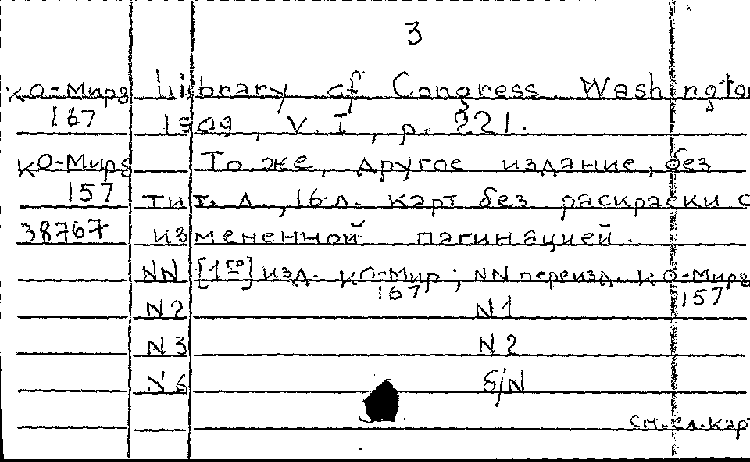 3
КО-Мирз Library of Congress Washington
167 1909, V. I, p. 221.
КО-Мирз То же, другое издание, без
157 тит. л., 16 л. карт без раскраски с
38767 измененной пагинацией.
NN [1го] изд. КО-Мир 167; NN переизд. КО-Мирз 157
N2 N1
N3 N2
N6 б/N
см. сл. кар